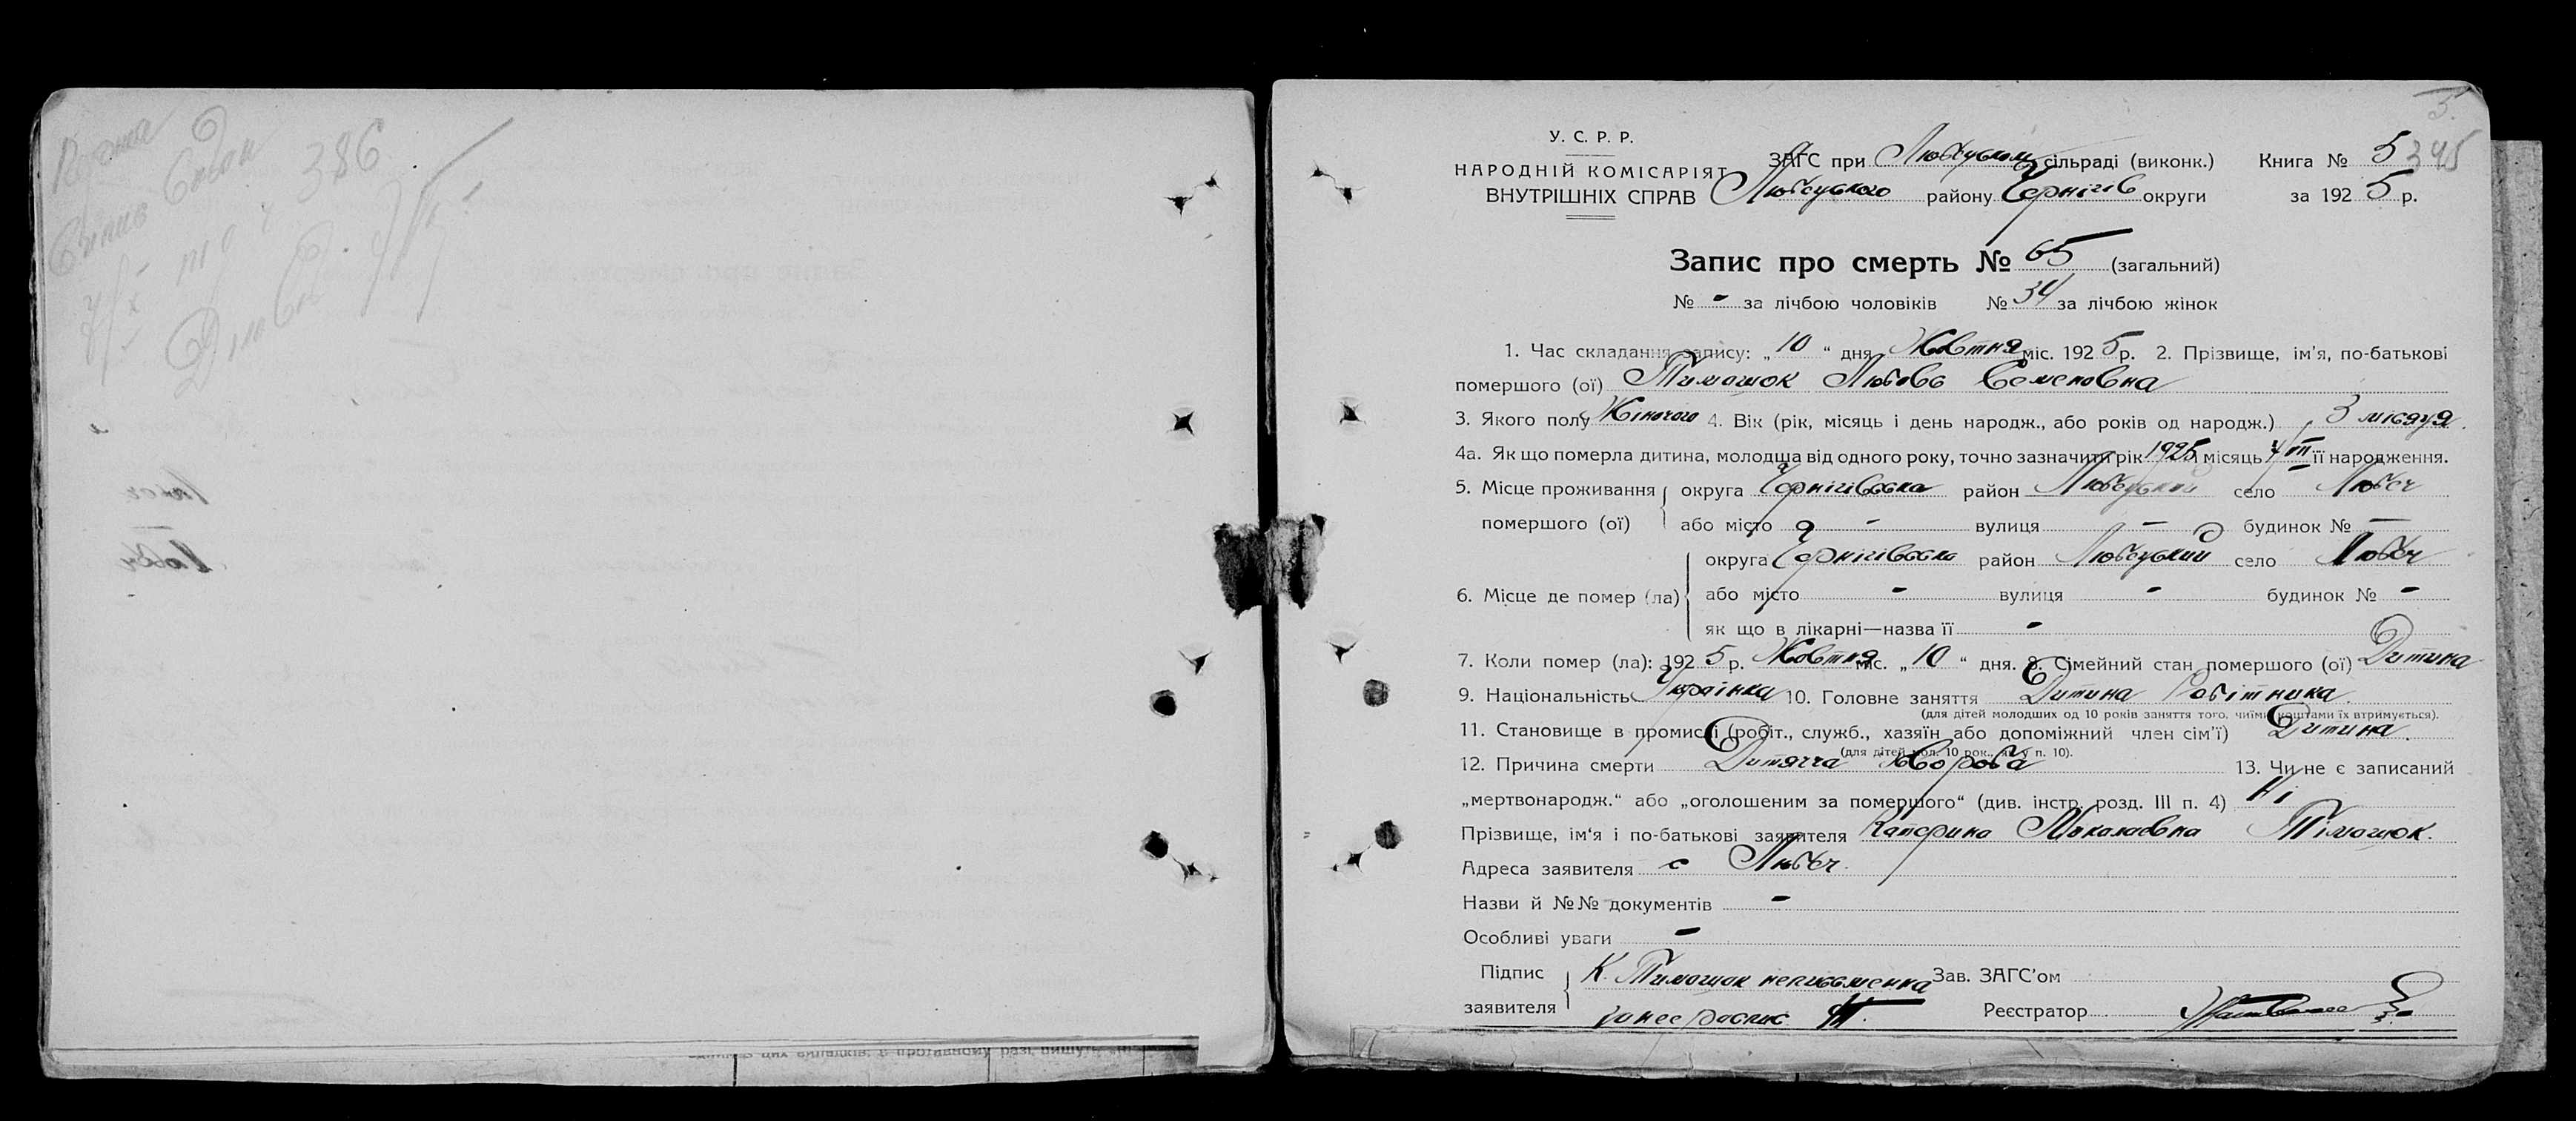 386
5.
У. С. Р. Р.
НАРОДНІЙ КОМІСАРІЯТ
ВНУТРІШНІХ СПРАВ
ЗАГС при Любецьком сільраді (виконк.) Книга № 5 345
Любецького району Чернігів округи за 192 5 р.
Запис про смерть № 65 (загальний)
№ - за лічбою чоловіків № 34 за лічбою жінок
1. Час складання запису: „ 10 “ дня Жовтня міс. 192 5 р. 2. Прізвище, ім'я, по-батькові
помершого (ої) Тимошок Любовь Семеновна
3. Якого полу Жіночого 4. Вік (рік, місяць і день народж., або років од народж.) 3 місяця.
4а. Як що померла дитина, молодша від одного року, точно зазначити рік 1925 місяць її народження.
5. Місце проживання округа Чернігівська район Любецький село Любеч
помершого (ої) або місто - вулиця - будинок № -
округа Чернігівська район Любецький село Любеч
6. Місце де помер (ла) або місто - вулиця - будинок № -
як що в лікарні—назва її -
7. Коли помер (ла): 192 5 р. Жовтня міс. „ 10 “ дня. 8. Сімейний стан помершого (ої) Дитина
9. Національність Українка 10. Головне заняття Дитина Робітника.
(для дітей молодших од 10 років заняття того, чиїми коштами їх втримується).
11. Становище в промислі (робіт., служб., хазяїн або допоміжний член сім'ї) Дитина.
(для дітей мол. 10 рок., як у п. 10).
12. Причина смерти Дитячча хвороба 13. Чи не є записаний
„мертвонародж.“ або „оголошеним за помершого“ (див. інстр. розд. III п. 4) Ні
Прізвище, ім'я і по-батькові заявителя Катерина Миколаевна Тімошок.
Адреса заявителя с Любеч.
Назви й №№ документів -
Особливі уваги -
Підпис К. Тимошок неписьменна Зав. ЗАГС'ом
заявителя Реєстратор